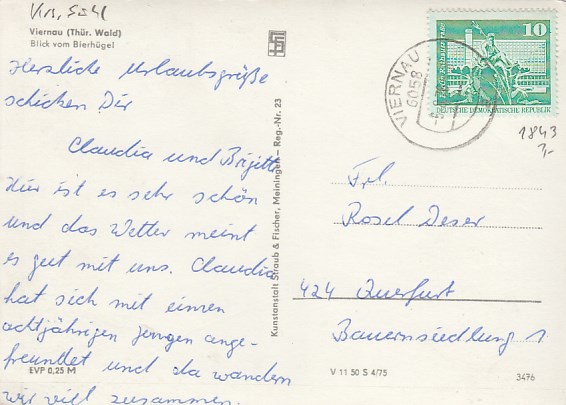 Krs. Suhl
Viernau (Thür. Wald)
Blick vom Bierhügel
Herzliche Urlaubsgrüße
schicken Dir
Claudia und Brigitte
Hier ist es sehr schön
und das Wetter meint
es gut mit uns. Claudia
hat sich mit einem
achtjährigen Jungen ange-
freundet und da wandern
wir viel zusammen.
EVP 0,25 M
Kunstanstalt Straub & Fischer, Meiningen - Reg.-Nr. 23
VIERNAU
6058
10
DEUTSCHE DEMOKRATISCHE REPUBLIK
1843
Frl.
Rosel Deser
424 Querfurt
Bauernsiedlung 1
V 11 50 S 4/75
3476